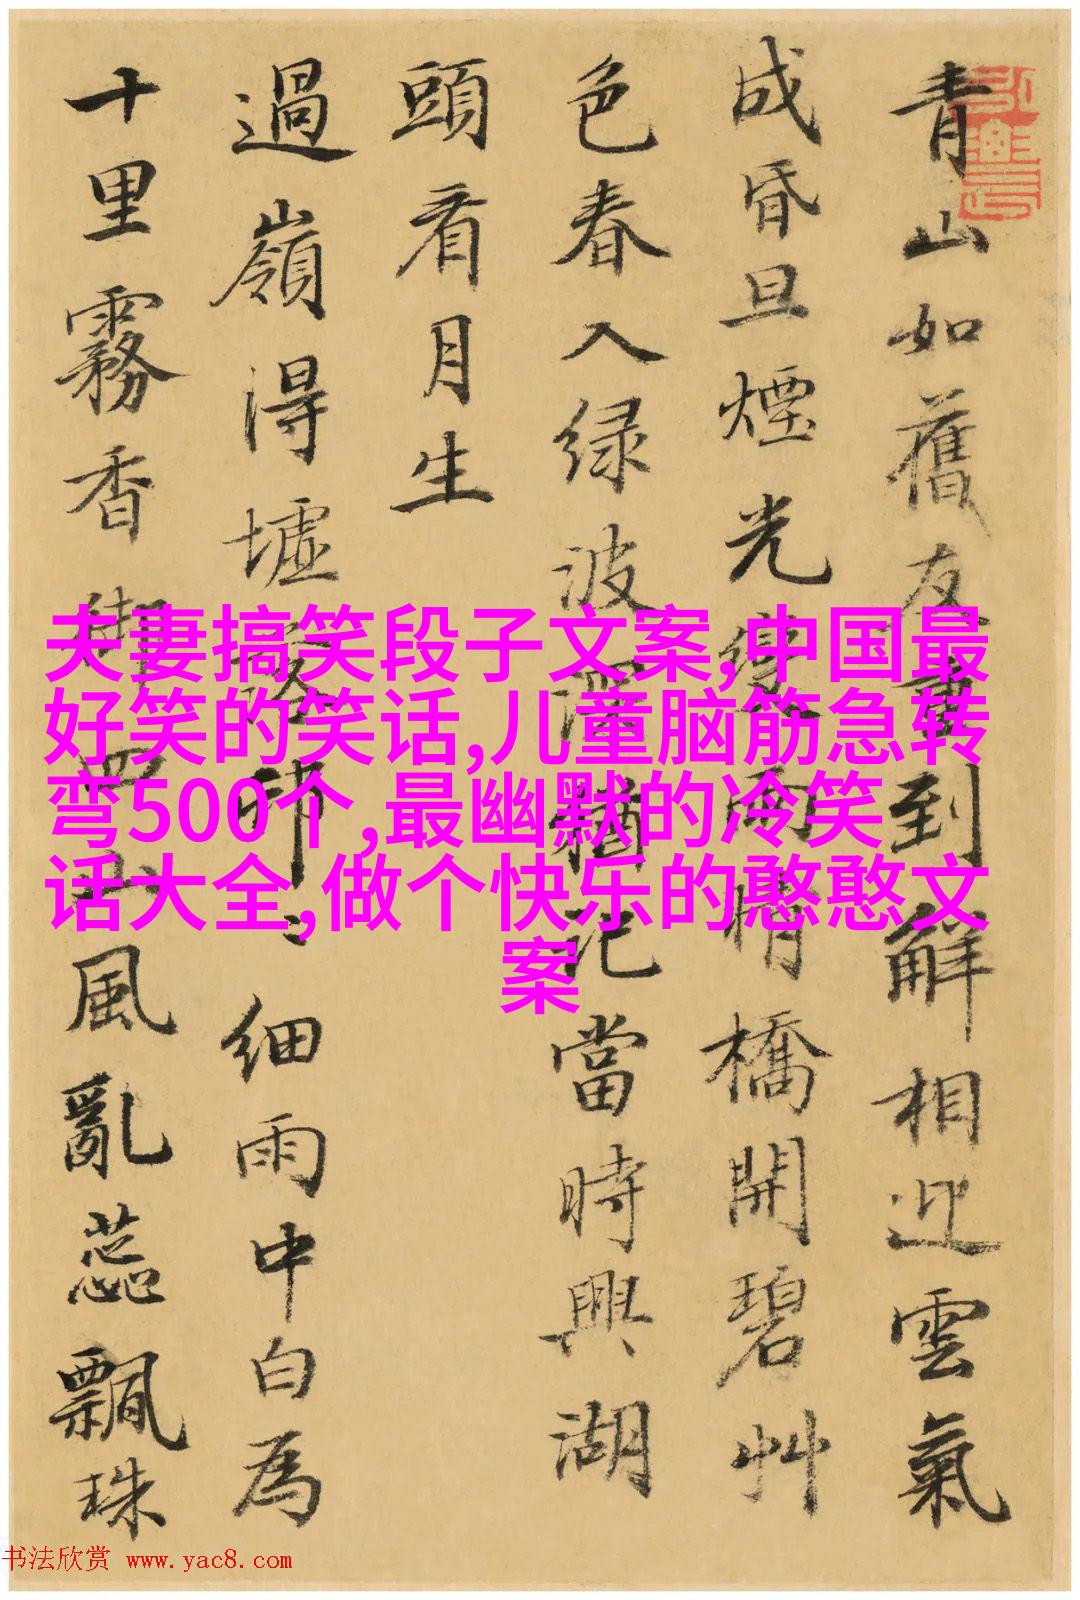 青山如舊友重到解相迎雲氣
成昏旦煙光變雨晴橋開碧艸
色春入绿波深猶記當時興湖
頭看月生
過嶺得墟路邨〻細雨中白為
十里霧香御四山風亂蕊飄珠
夫妻搞笑段子文案,中国最
好笑的笑话,儿童脑筋急转
弯500个,最幽默的冷笑
话大全,做个快乐的憨憨文
案
书法欣赏 www.yac8.com